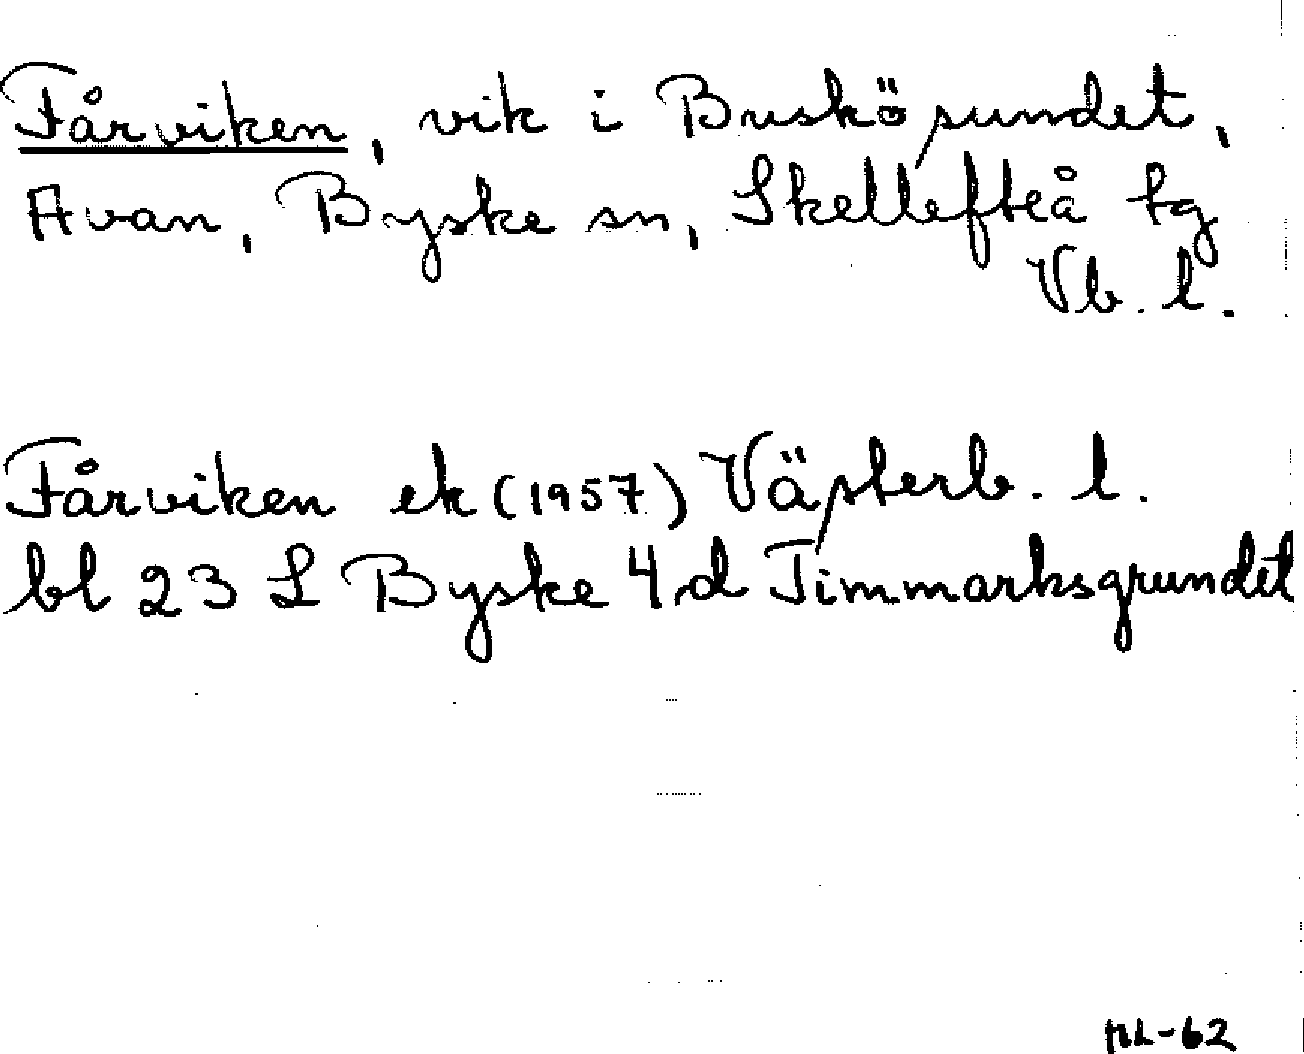 Fårviken, vik i Buskösundet,
Avan, Byske sn, Skellefteå tg
Vb. l.
Fårviken ek (1957) Västerb. l.
bl 23 L Byske 4 d Timmarksgrundet
ML-62